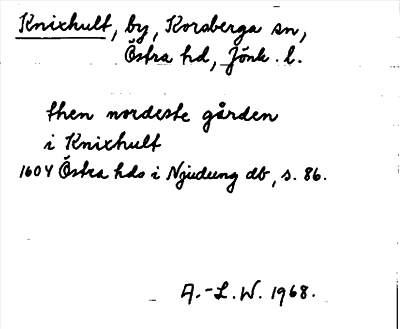 Knixhult, by, Korsberga sn,
Östra hd, Jönk. l.
then nordeste gården
i Knixhult
1604 Östra hds i Njudung db, s. 86.
A.-L.W. 1968.